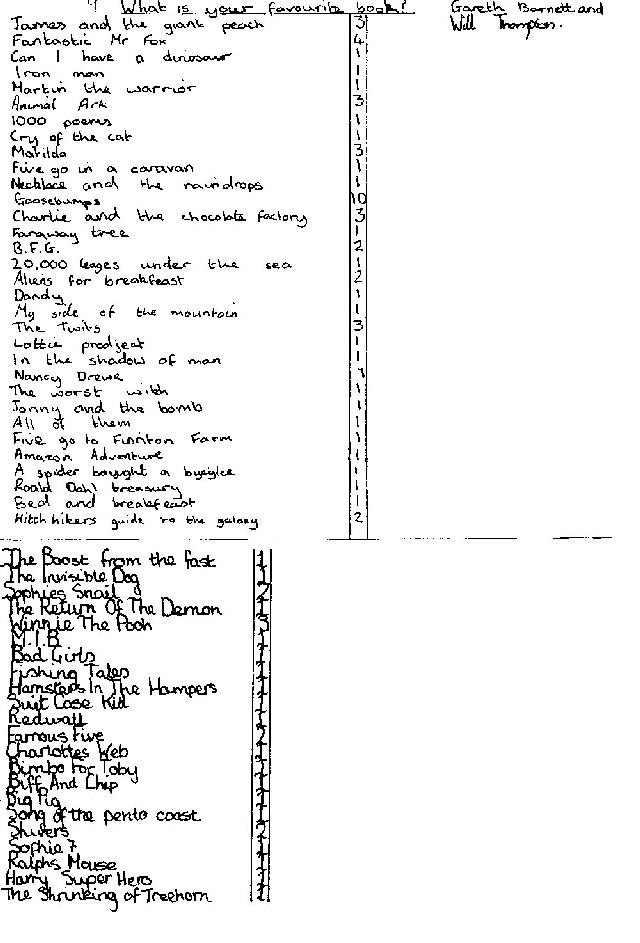 What is your favourite book!
Gareth Barnett and
Will Thompson.
James and the giant peach 3
Fantastic Mr Fox 4
Can I have a dinosaur 1
Iron man 1
Martin the warrior 1
Animal Ark 3
1000 poems 1
Cry of the cat 1
Matilda 3
Five go in a caravan 1
Necklace and the raindrops 1
Goosebumps 10
Charlie and the chocolate factory 3
Faraway tree 1
B.F.G. 2
20,000 leages under the sea 1
Aliens for breakfeast 2
Dandy 1
My side of the mountain 1
The Twits 3
Lottie prodject 1
In the shadow of man 1
Nancy Drewe 1
The worst witch 1
Jonny and the bomb 1
All of them 1
Five go to Finniton Farm 1
Amazon Adventure 1
A spider bought a byciglce 1
Roald Dahl treasury 1
Bed and breakfeast 1
Hitch hikers guide to the galaxy 2
The Boost from the fast 1
The Invisible Dog 1
Sophies Snail 2
The Return Of The Demon 1
Winnie The Pooh 3
M.I.B 1
Bad Girls 1
Fishing Tales 1
Hamsters In The Hampers 1
Suit Case Kid 1
Redwall 1
Famous Five 2
Charlottes Web 1
Bimbo For Toby 1
Biff And Chip 1
Big Pig 1
Song of the pento coast 1
Shivers 2
Sophie 7 1
Ralphs Mouse 1
Harry Super Hero 1
The Shrinking of Treehorn 1